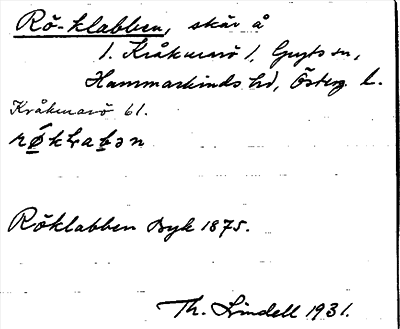 Rö-klabben, skär å
1. Kråkmarö 1, Gryts sn,
Hammarkinds hd, Österg. l.
Kråkmarö 61.
Röklabben Byk 1875.
Th. Lindell 1931.